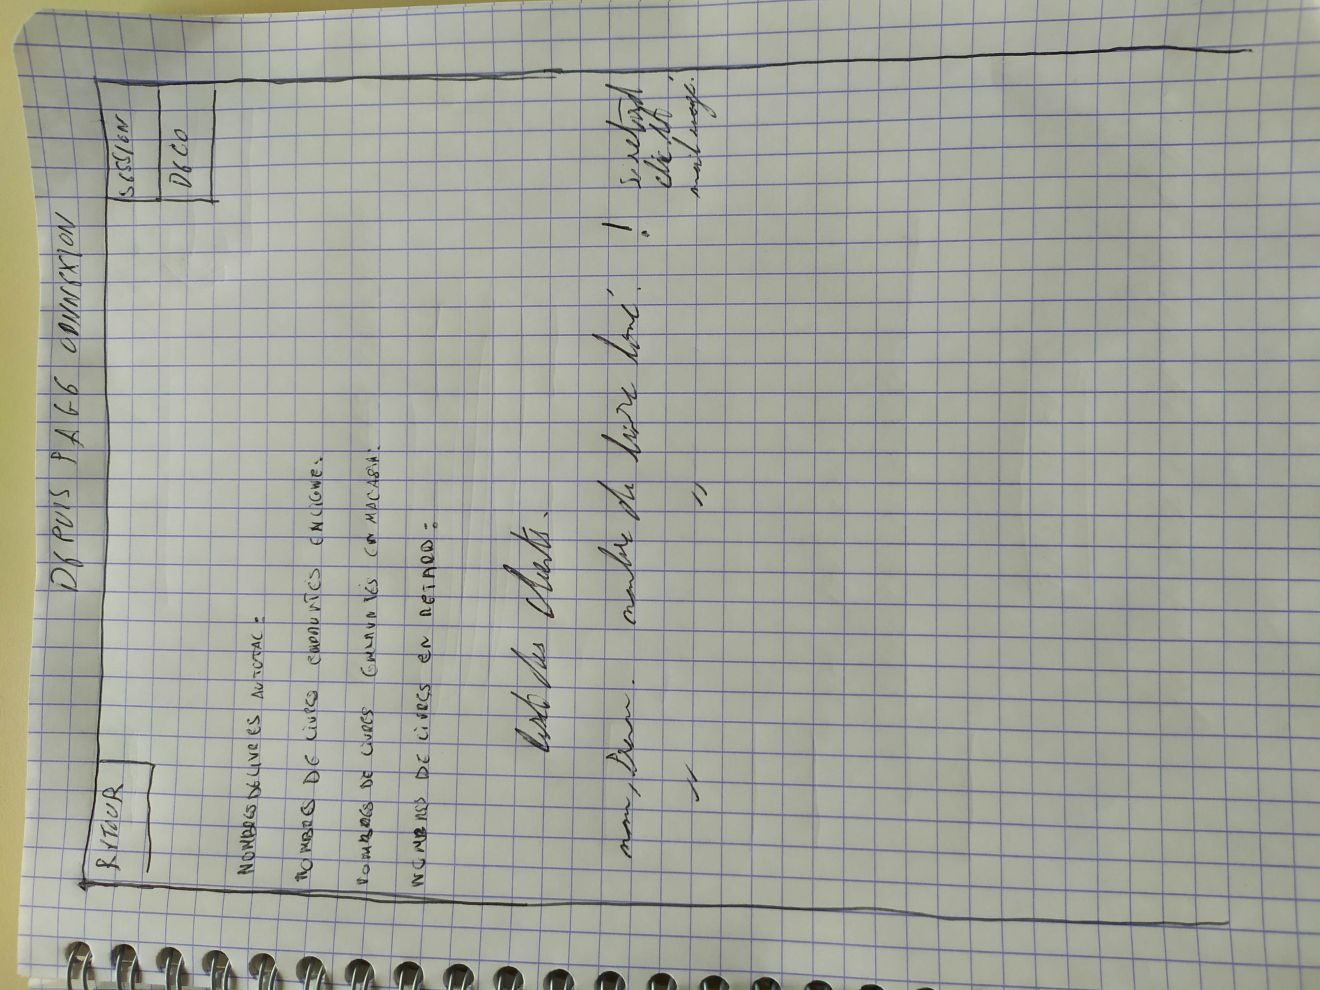 DEPUIS PAGE CONNEXION
RETOUR
SESSION
DECO
NOMBRES DE LIVRES AU TOTAL :
NOMBRES DE LIVRES EMPRUNTÉS EN LIGNE :
NOMBRES DE LIVRES EMPRUNTÉS EN MAGASIN :
NOMBRES DE LIVRES EN RETARD :
Liste des clients.
nom, Prenom. nombre de livre loué. ! si retard
mail
" "